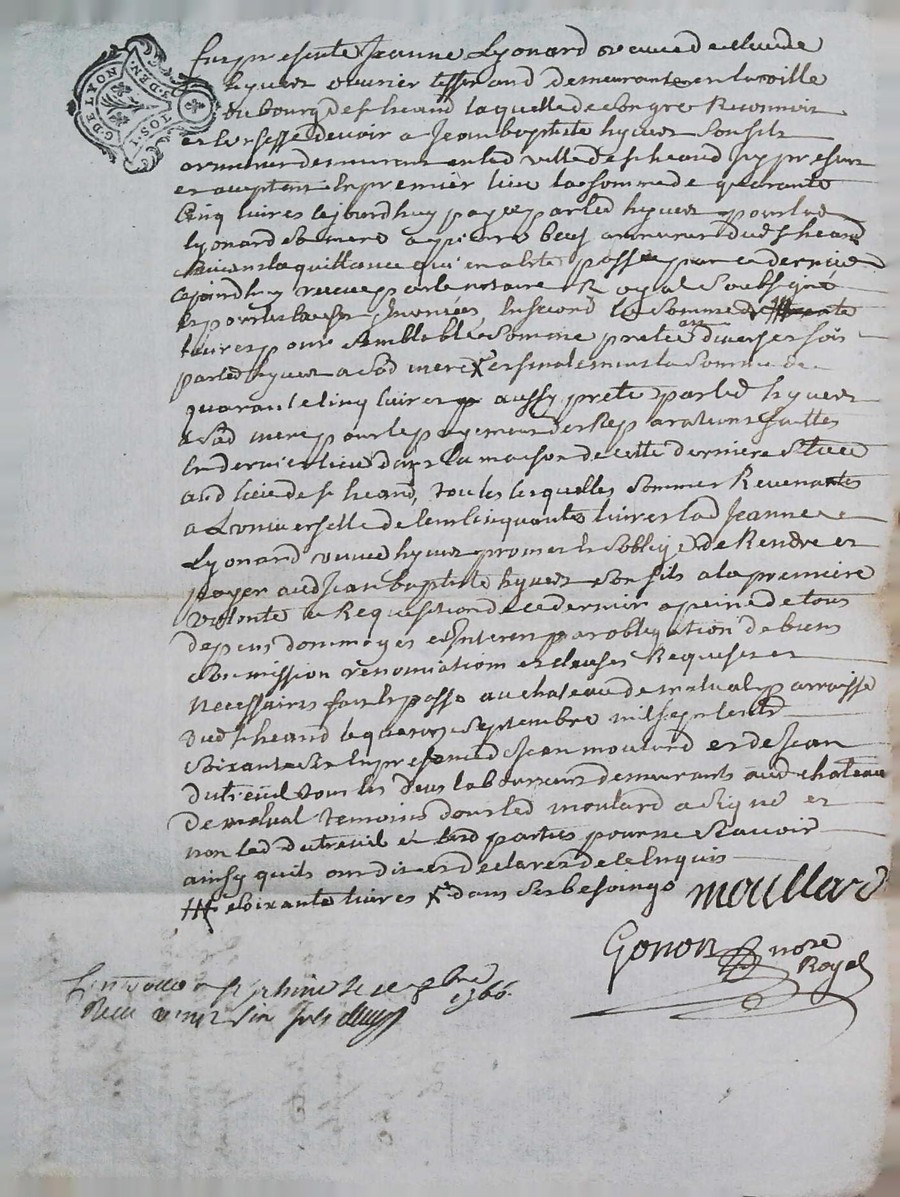 G. DE LYON
3. DEN.
1. SOL
Fut presente Jeanne Lyonard veuve de claude
hyvert ouvrier tisserand demeurante en la ville
du bourg de st heand laquelle de son gre Reconnoit
et confesse devoir a Jean baptiste hyvert son fils
armurier demeurant en lad ville de st heand icy present
et acceptant En premier lieu la somme de quarante
Cinq livres cejourdhuy payee par led hyvert pour lad
Lyonard sa mere a pierre armurier dud st heand
suivant la quittance qui en a été passée par ce dernier
cejourdhuy receue par le notaire Royal soubsigné
et pour les causes y Enoncées, En second la somme de ###
livres pour semblable somme pretée en diverses fois
par led hyvert a sad mere X et finalement la somme de
quarante cinq livres aussy preté par led hyvert
a sad mere pour le payement des Reparations faittes
En dernier lieu dans la maison de cette derniere située
aud lieu de st heand, toutes lesquelles sommes Revenantes
a L'universelle de cent cinquante livres lad Jeanne
Lyonard veuve hyvert promet et s'oblige de Rendre et
payer aud Jean baptiste hyvert son fils a la premiere
volonté et Requisition de ce dernier a peine de tous
depens dommages et Interets par obligation de biens
soumission renonciation et clauses Requises et
necessaires fait et passé au chateau de malval parroisse
dud st heand le quatorze septembre mil sept cents
soixante six En presence de Jean moulard et de Jean
dutreüil tous les deux laboureurs demeurants aud chateau
de malval temoins dont led moulard a signé et
non led dutreuil et lesd parties pour ne scavoir
ainsy qu'ils ont dit et declaré de ce Enquis
### soixante livres X dans ses besoings moullard
Gonon nore
Royal
7bre 1766.
Reçu